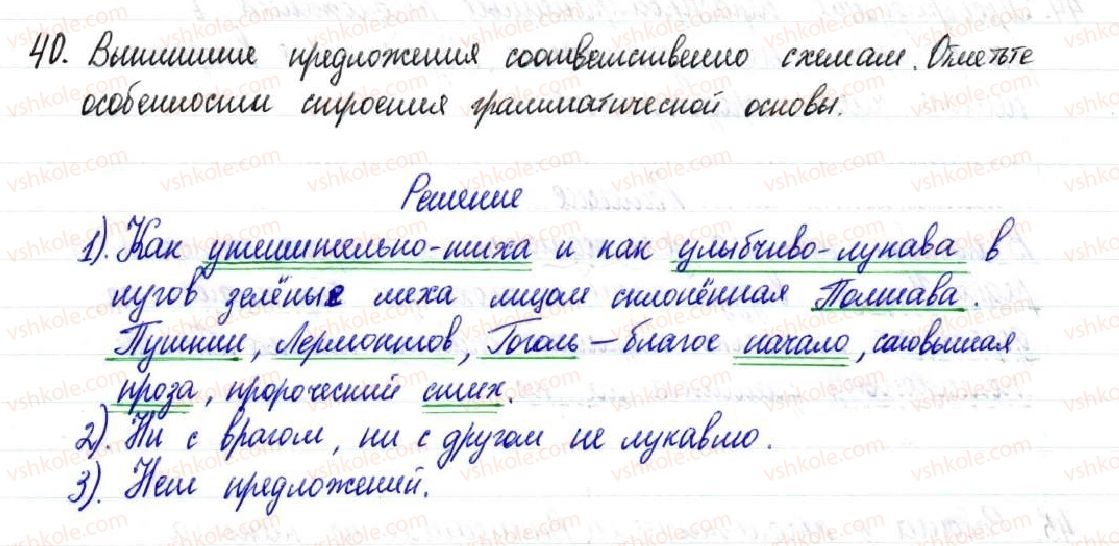 40. Выпишите предложения соответственно схемам. Отметьте
особенности строения грамматической основы.
Решение
1). Как утешительно-тиха и как улыбчиво-лукава в
лугов зелёные меха лицом склонённая Полтава.
Пушкин, Лермонтов, Гоголь – благое начало, соловьиная
проза, пророческий стих.
2). Ни с врагом, ни с другом не лукавлю.
3). Нет предложений.